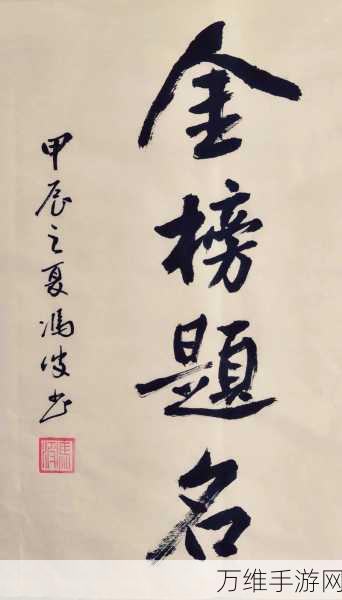 金榜题名
甲辰之夏冯俊书
万维手游网